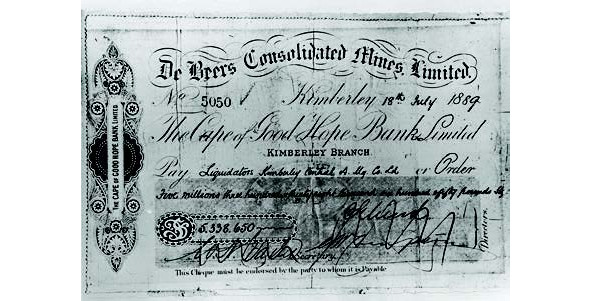 De Beers Consolidated Mines, Limited.
No 5050 Kimberley 18th July 1889
The Cape of Good Hope Bank Limited
KIMBERLEY BRANCH.
Pay Liquidators Kimberley Central D Mg Co Ld or Order
Five millions three hundred and thirty eight thousand six hundred & fifty pounds
£ 5,338,650
Secretary
Directors
This Cheque must be endorsed by the party to whom it is Payable
THE CAPE OF GOOD HOPE BANK LIMITED